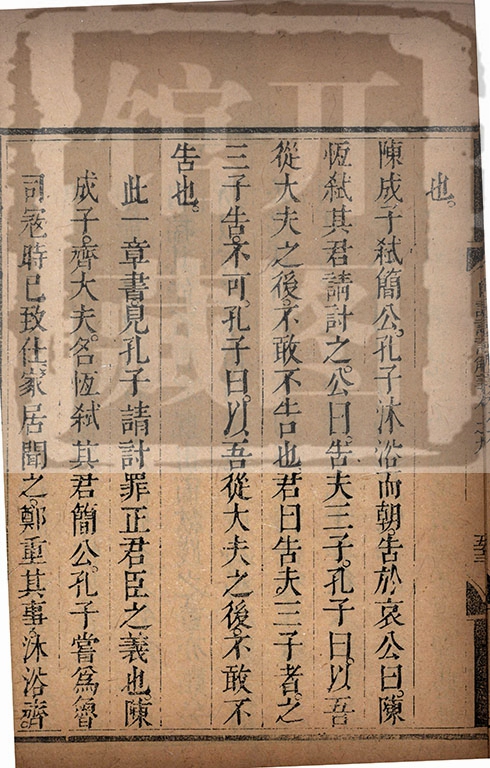 也。
陳成子弑簡公。孔子沐浴而朝告於哀公曰。陳
恆弑其君請討之。公曰。告夫三子。孔子曰。以吾
從大夫之後。不敢不告也君曰告夫三子者。之
三子告。不可。孔子曰。以吾從大夫之後。不敢不
告也。
此一章書見孔子請討罪正君臣之義也陳
成子。齊大夫。名恆弑其君簡公。孔子嘗為魯
司寇時已致仕家居聞之。鄭重其事。沐浴齊